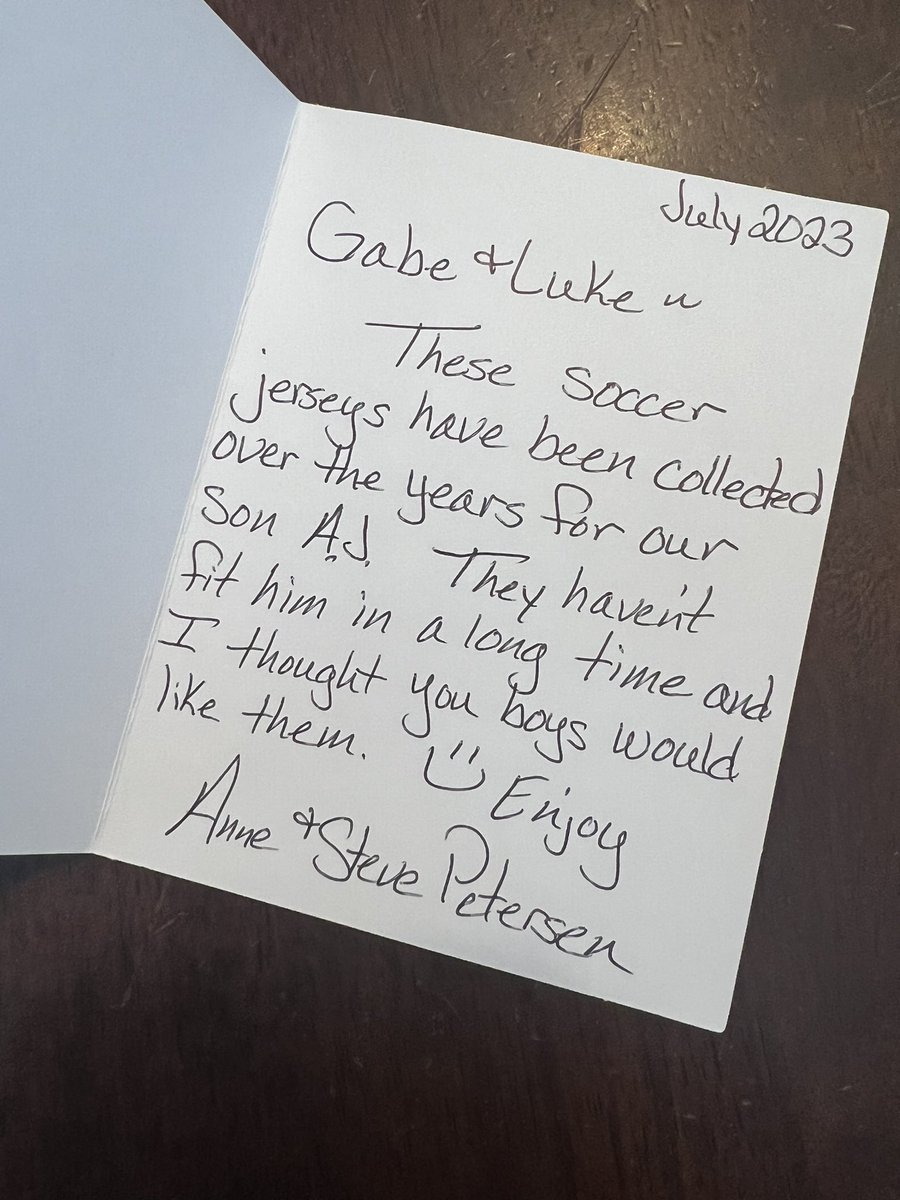 July 2023
Gabe & Luke ~
These soccer
jerseys have been collected
over the years for our
son A.J. They haven't
fit him in a long time and
I thought you boys would
like them. Enjoy
Anne & Steve Petersen